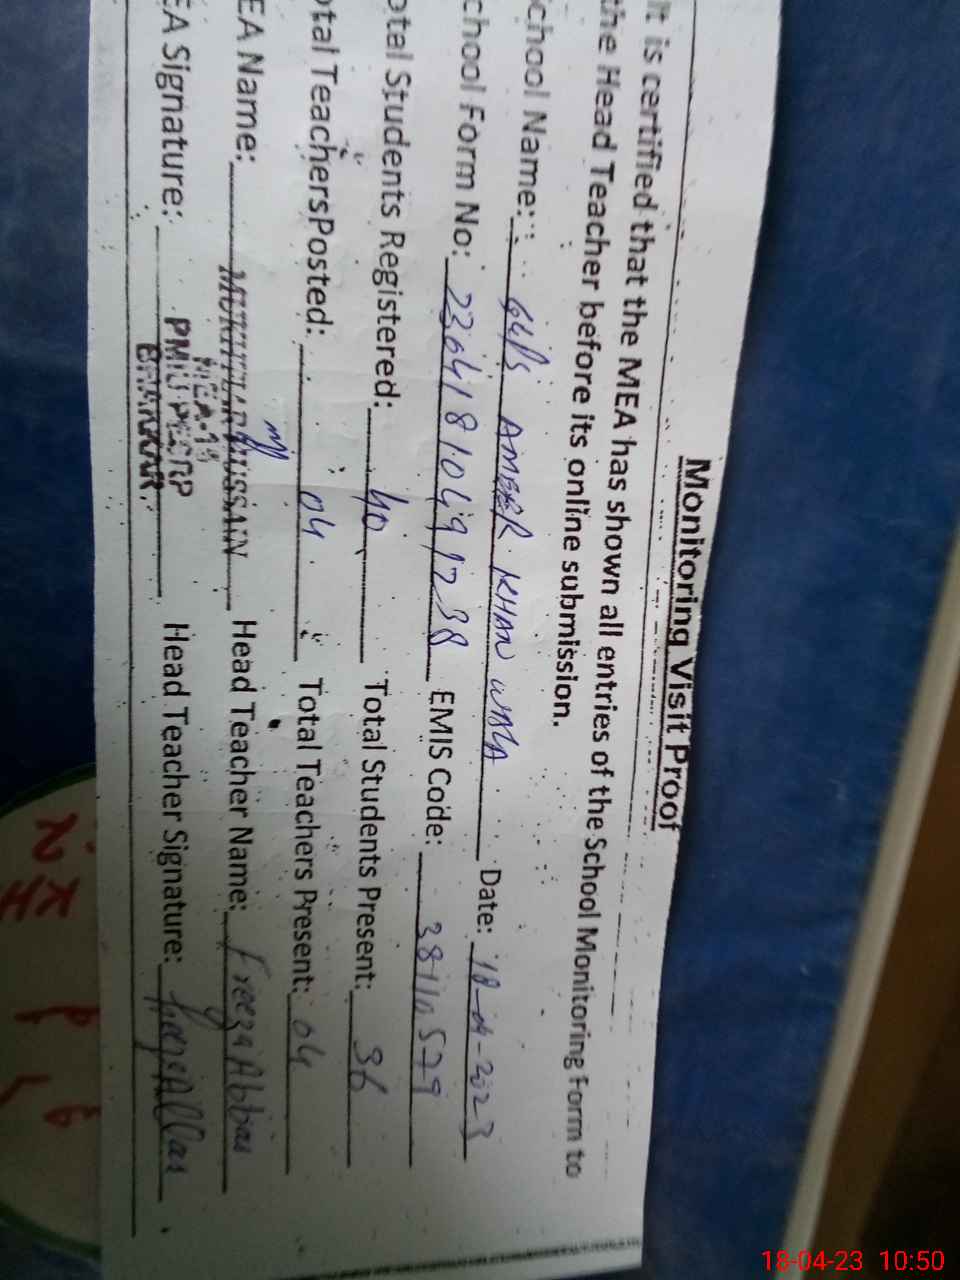 Monitoring Visit Proof
It is certified that the MEA has shown all entries of the School Monitoring Form to
the Head Teacher before its online submission.
chool Name: AMEER KHAN WALA Date: 18-04-2023
chool Form No: EMIS Code:
otal Students Registered: 40 Total Students Present: 36
otal TeachersPosted: 04 Total Teachers Present: 04
EA Name: MUKHTAR HUSSAIN Head Teacher Name: Freeza Abbas
EA Signature: Head Teacher Signature:
PMIU PESRP
BHAKKAR
18-04-23 10:50